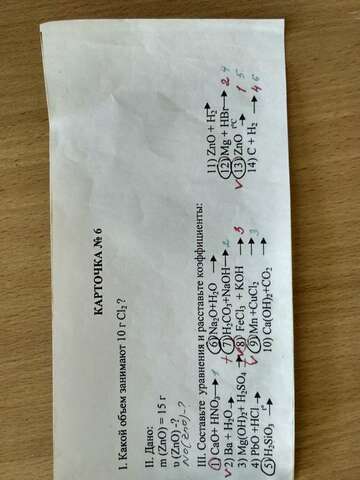 КАРТОЧКА № 6
I. Какой объем занимают 10 г Cl₂?
II. Дано:
m (ZnO) = 15 г
υ (ZnO) -?
N (ZnO) - ?
III. Составьте уравнения и расставьте коэффициенты:
1) CaO+ HNO₃→
2) Ba + H₂O→
3) Mg(OH)₂+ H₂SO₄→
4) PbO +HCl→
5) H₂SiO₃ →
6) Na₂O+H₂O→
7) H₂CO₃+NaOH→ 2
8) FeCl₃ + KOH → 3
9) Mn +CuCl₂ → 3
10) Ca(OH)₂+CO₂ →
11) ZnO + H₂→
12) Mg + HBr→ 2 4
13) ZnO → 1 5
14) C + H₂ → 4 6